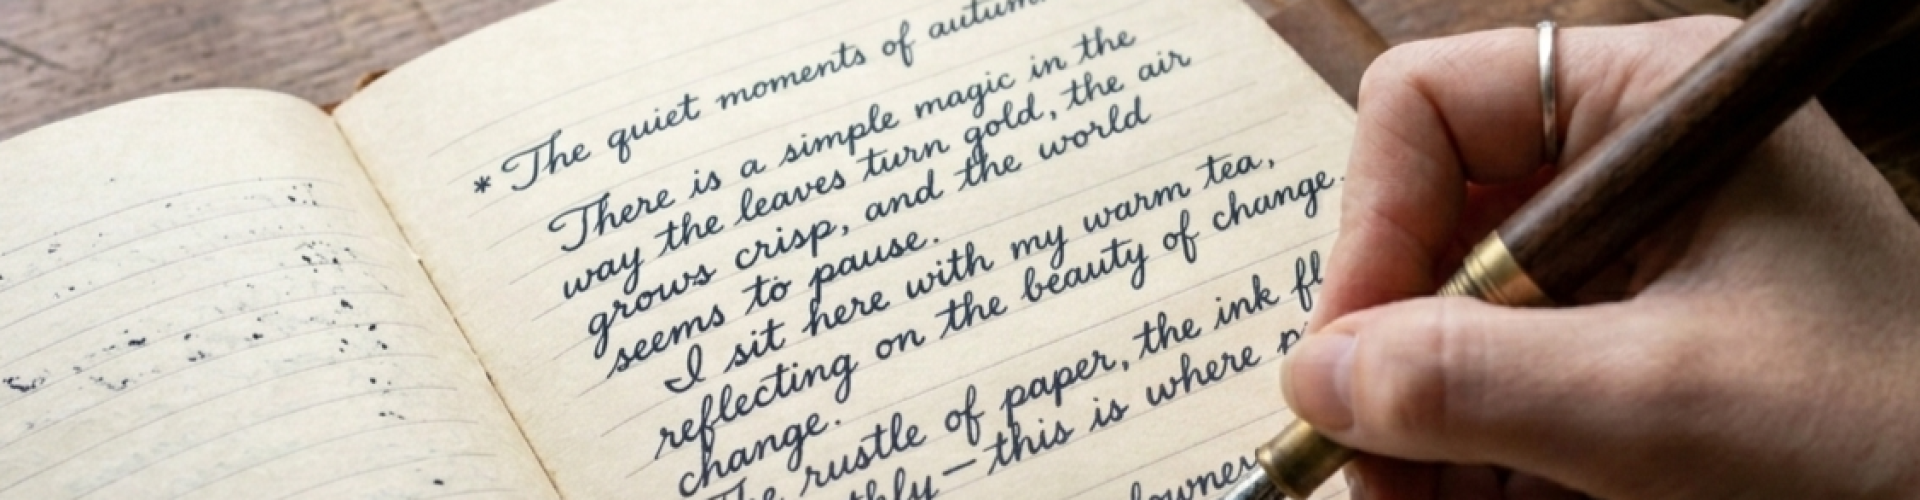 * The quiet moments of autum
There is a simple magic in the
way the leaves turn gold, the air
grows crisp, and the world
seems to pause.
I sit here with my warm tea,
reflecting on the beauty of change.
change.
The rustle of paper, the ink fl
thly—this is where p